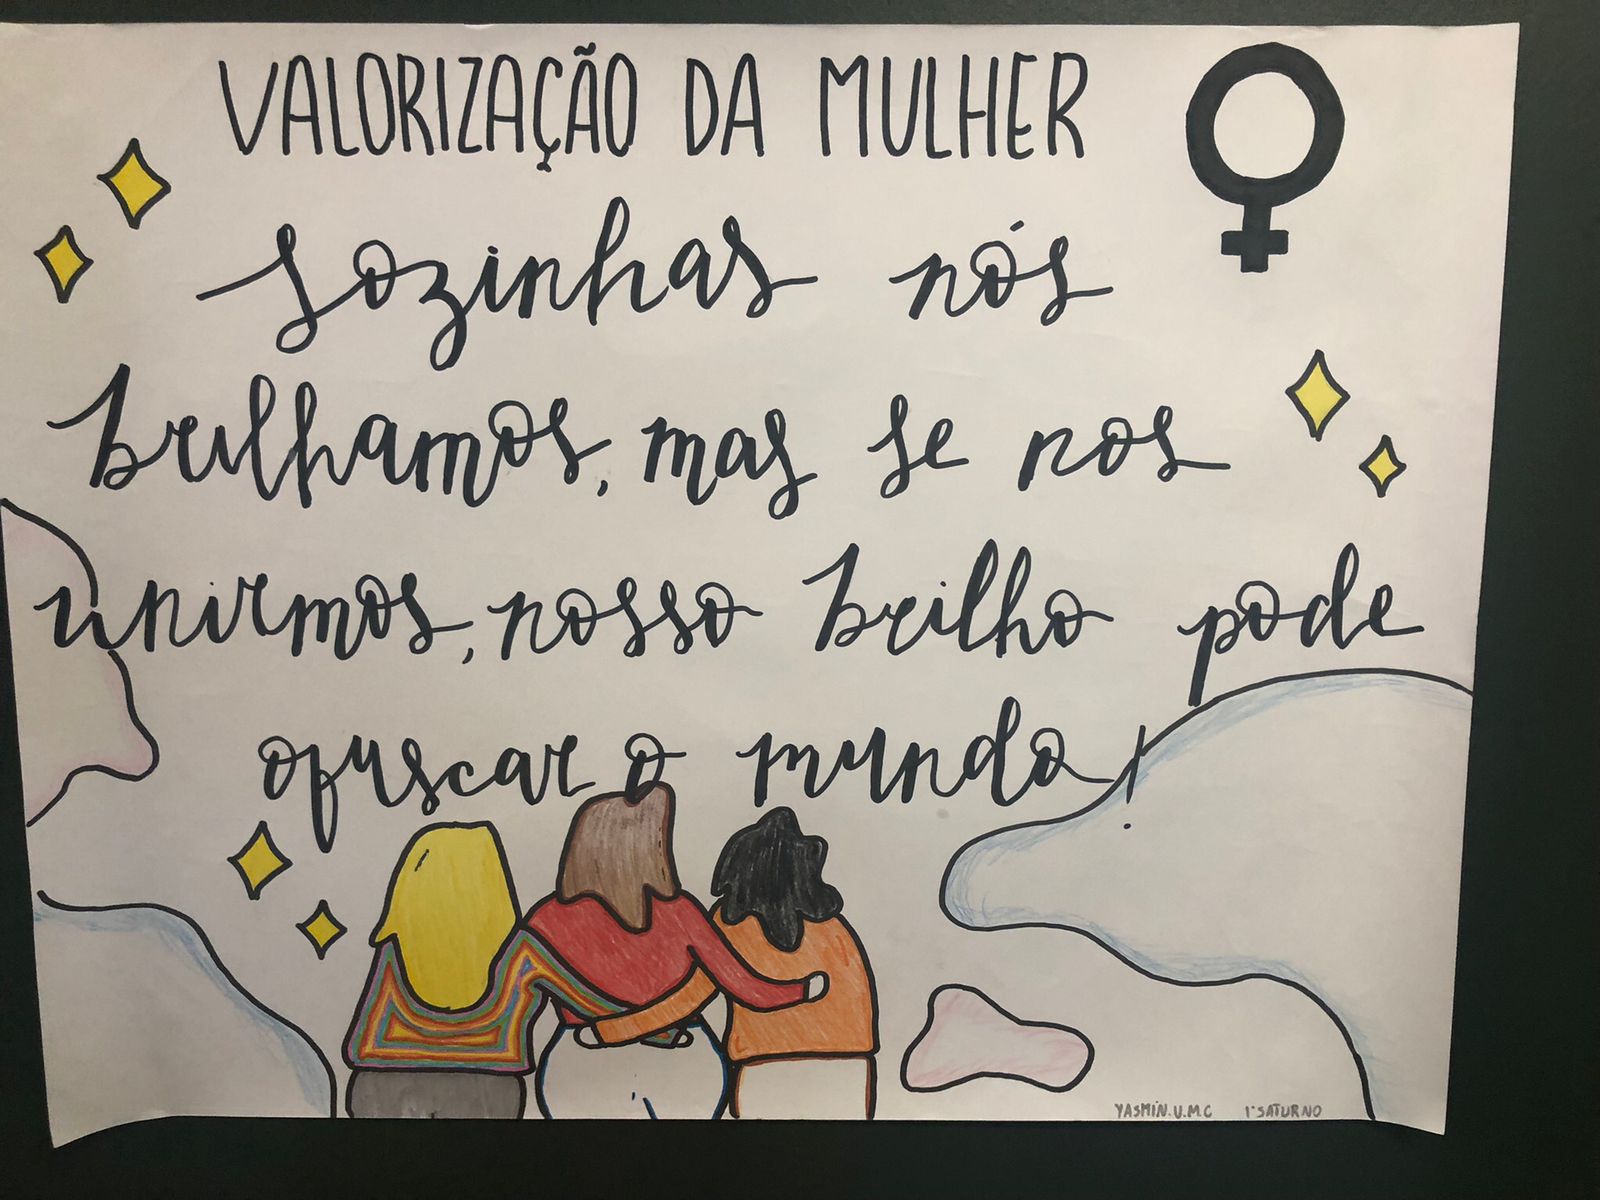 VALORIZAÇÃO DA MULHER
sozinhas nós
brilhamos, mas se nos
unirmos, nosso brilho pode
ofuscar o mundo!
YASMIN.U.M.C 1°SATURNO